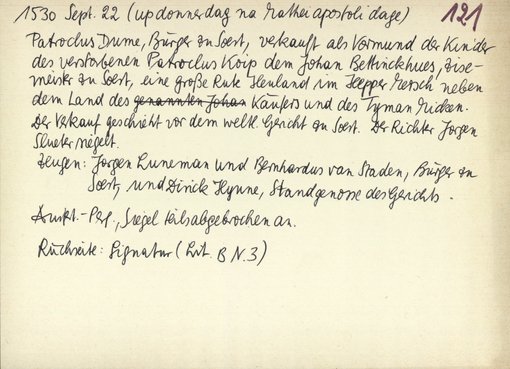 1530 Sept. 22 (up donnerdag na Mathei apostoli dage) 121
Patroclus Dume, Bürger zu Soest, verkauft als Vormund der Kinder
des verstorbenen Patroclus Koip dem Johan Bettinckhues, Zise-
meister zu Soest, eine große Rute Heuland im Hepper Mersch neben
dem Land des genannten Johan Käufers und des Tyman Micken.
Der Verkauf geschieht vor dem weltl. Gericht zu Soest. Der Richter Jorgen
Sluter siegelt.
Zeugen: Jorgen Luneman und Bernhardus van Staden, Bürger zu
Soest, und Dirick Hynne, Standgenosse des Gerichts.
Ausf.-Perg., Siegel teils abgebrochen an.
Rückseite: Signatur (Lit. B N. 3)